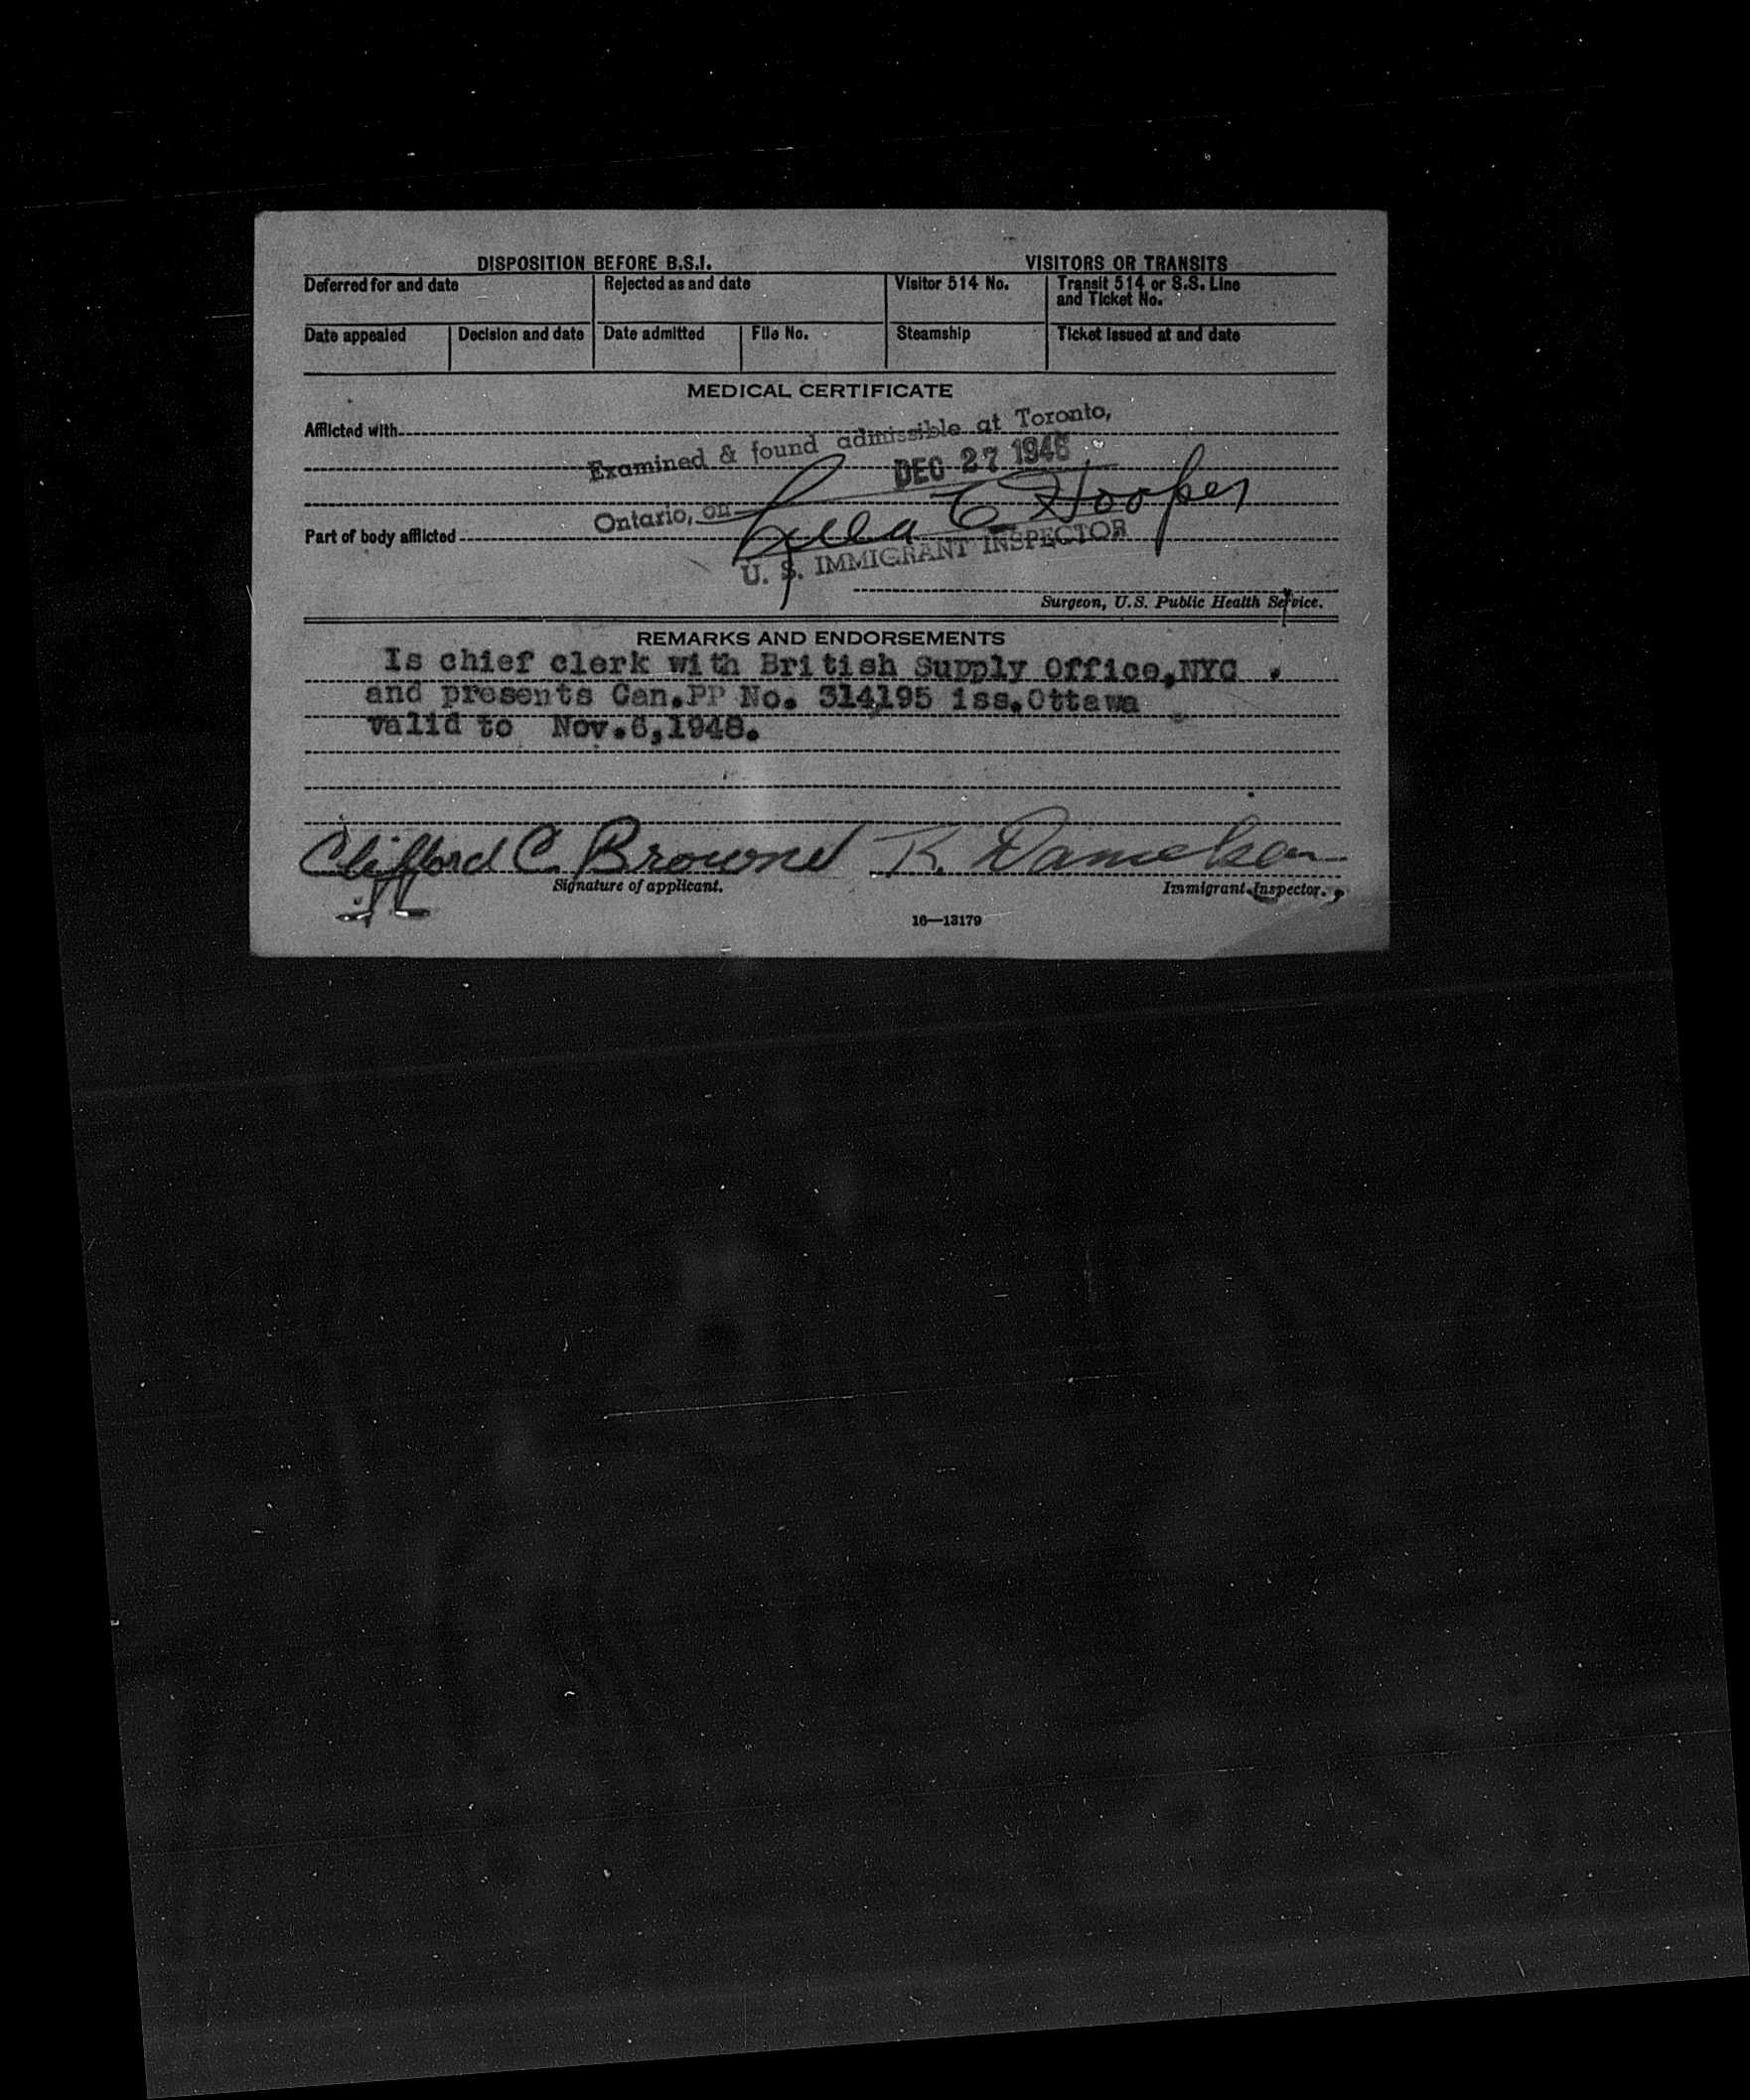 DISPOSITION BEFORE B.S.I. VISITORS OR TRANSITS
Deferred for and date Rejected as and date Visitor 514 No. Transit 514 or S.S. Line
and Ticket No.
Date appealed Decision and date Date admitted File No. Steamship Ticket issued at and date
MEDICAL CERTIFICATE
Afflicted with
Examined & found admissible at Toronto,
DEC 27 1946
Ontario, on
C Hooper
Part of body afflicted
U. S. IMMIGRANT INSPECTOR
Surgeon, U.S. Public Health Service.
REMARKS AND ENDORSEMENTS
Is chief clerk with British Supply Office,NYC .
and presents Can.PP No. 314195 iss.Ottawa
valid to Nov.6,1948.
Clifford C. Browne K. Danielson
Signature of applicant. Immigrant Inspector.
16—13179